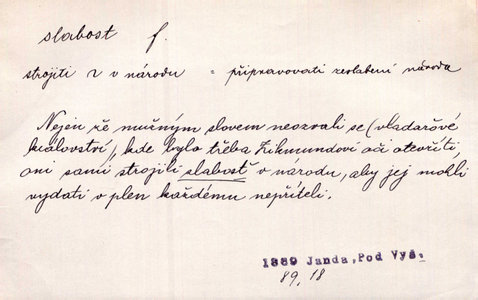 slabost f.
strojiti z v národu = připravovati zeslabení národa
Nejen že mužným slovem neozvali se (vladařové
království), kde bylo třeba Zikmundovi oči otevříti,
oni sami strojili slabost v národu, aby jej mohli
vydati v plen každému nepříteli.
1889 Janda, Pod Vyš.
89, 18